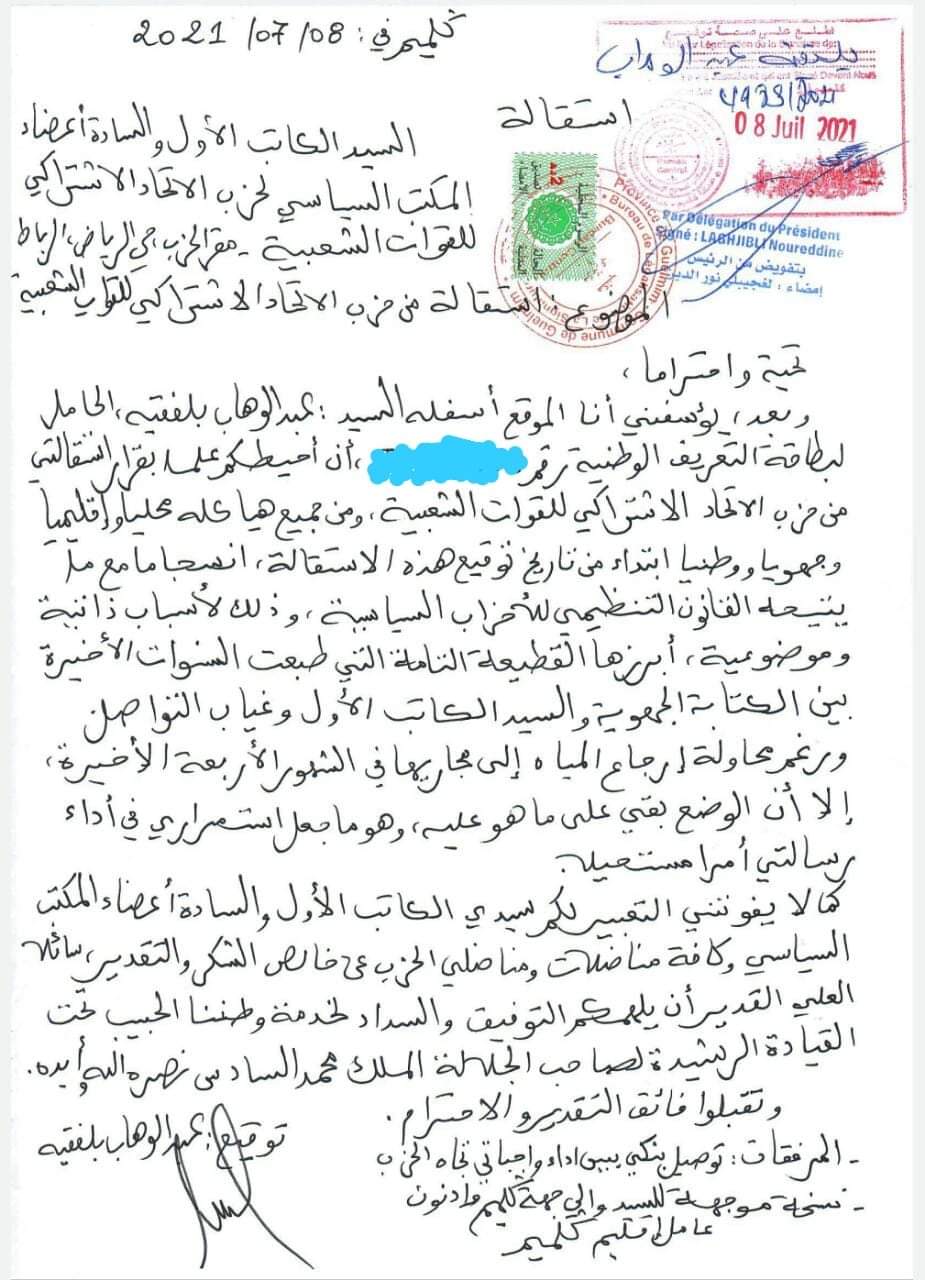 كلميم في: 08/ 07/ 2021
بلفقيه عبد الوهاب
4938/2021
08 Juil 2021
استقالة
السيد الكاتب الأول والسادة أعضاء
المكتب السياسي لحزب الاتحاد الاشتراكي
للقوات الشعبية - مقر الحزب حي الرياض، الرباط
الموضوع: استقالة من حزب الاتحاد الاشتراكي للقوات الشعبية
Province de Guelmim
Commune de Guelmim
Par Délégation du Président
Signé : LAGHJIBLI Noureddine
بتفويض من الرئيس
إمضاء : لغجيبلي نور الدين
تحية واحتراما،
وبعد، يؤسفني أنا الموقع أسفله السيد: عبد الوهاب بلفقيه، الحامل
لبطاقة التعريف الوطنية رقم، أن أحيطكم علما بقرار استقالتي
من حزب الاتحاد الاشتراكي للقوات الشعبية، ومن جميع هياكله محليا وإقليميا
وجهويا ووطنيا ابتداء من تاريخ توقيع هذه الاستقالة، انسجاما مع ما
يتيحه القانون التنظيمي للأحزاب السياسية، وذلك لأسباب ذاتية
وموضوعية، أبرزها القطيعة التامة التي طبعت السنوات الأخيرة
بين الكتابة الجهوية والسيد الكاتب الأول وغياب التواصل
ورغم محاولة إرجاع المياه إلى مجاريها في الشهور الأربعة الأخيرة،
إلا أن الوضع بقي على ما هو عليه، وهو ما جعل استمراري في أداء
رسالتي أمرا مستحيلا.
كما لا يفوتني التعبير لكم سيدي الكاتب الأول والسادة أعضاء المكتب
السياسي وكافة مناضلات ومناضلي الحزب عن خالص الشكر والتقدير، سائلا
العلي القدير أن يلهمكم التوفيق والسداد لخدمة وطننا الحبيب تحت
القيادة الرشيدة لصاحب الجلالة الملك محمد السادس نصره الله وأيده.
وتقبلوا فائق التقدير والاحترام.
توقيع: عبد الوهاب بلفقيه
- المرفقات: توصيل بنكي يبين اداء واجباتي تجاه الحزب
- نسخة موجهة للسيد والي جهة كلميم وادنون
عامل إقليم كلميم